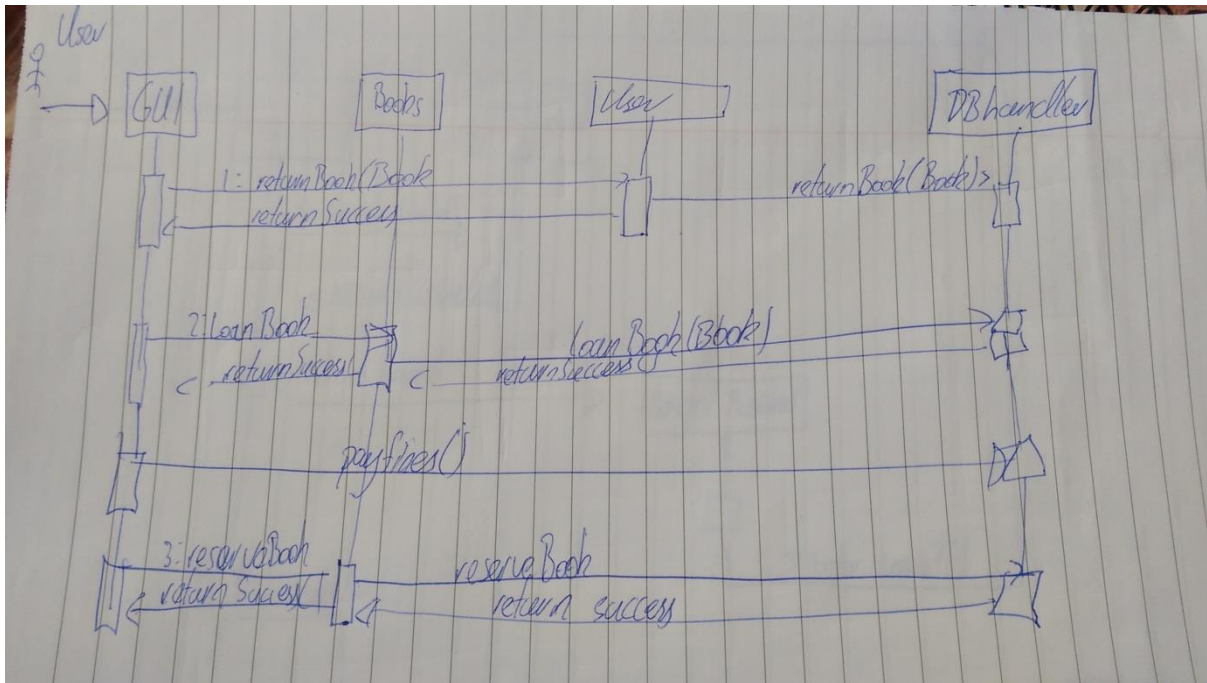 User
GUI
Books
User
DBhandler
1: returnBook(Book
returnBook(Book)>
returnSuccess
2: loanBook
loanBook(Book)
returnSuccess
returnSuccess
payfines()
3: reserveBook
reserveBook
returnSuccess(
return success